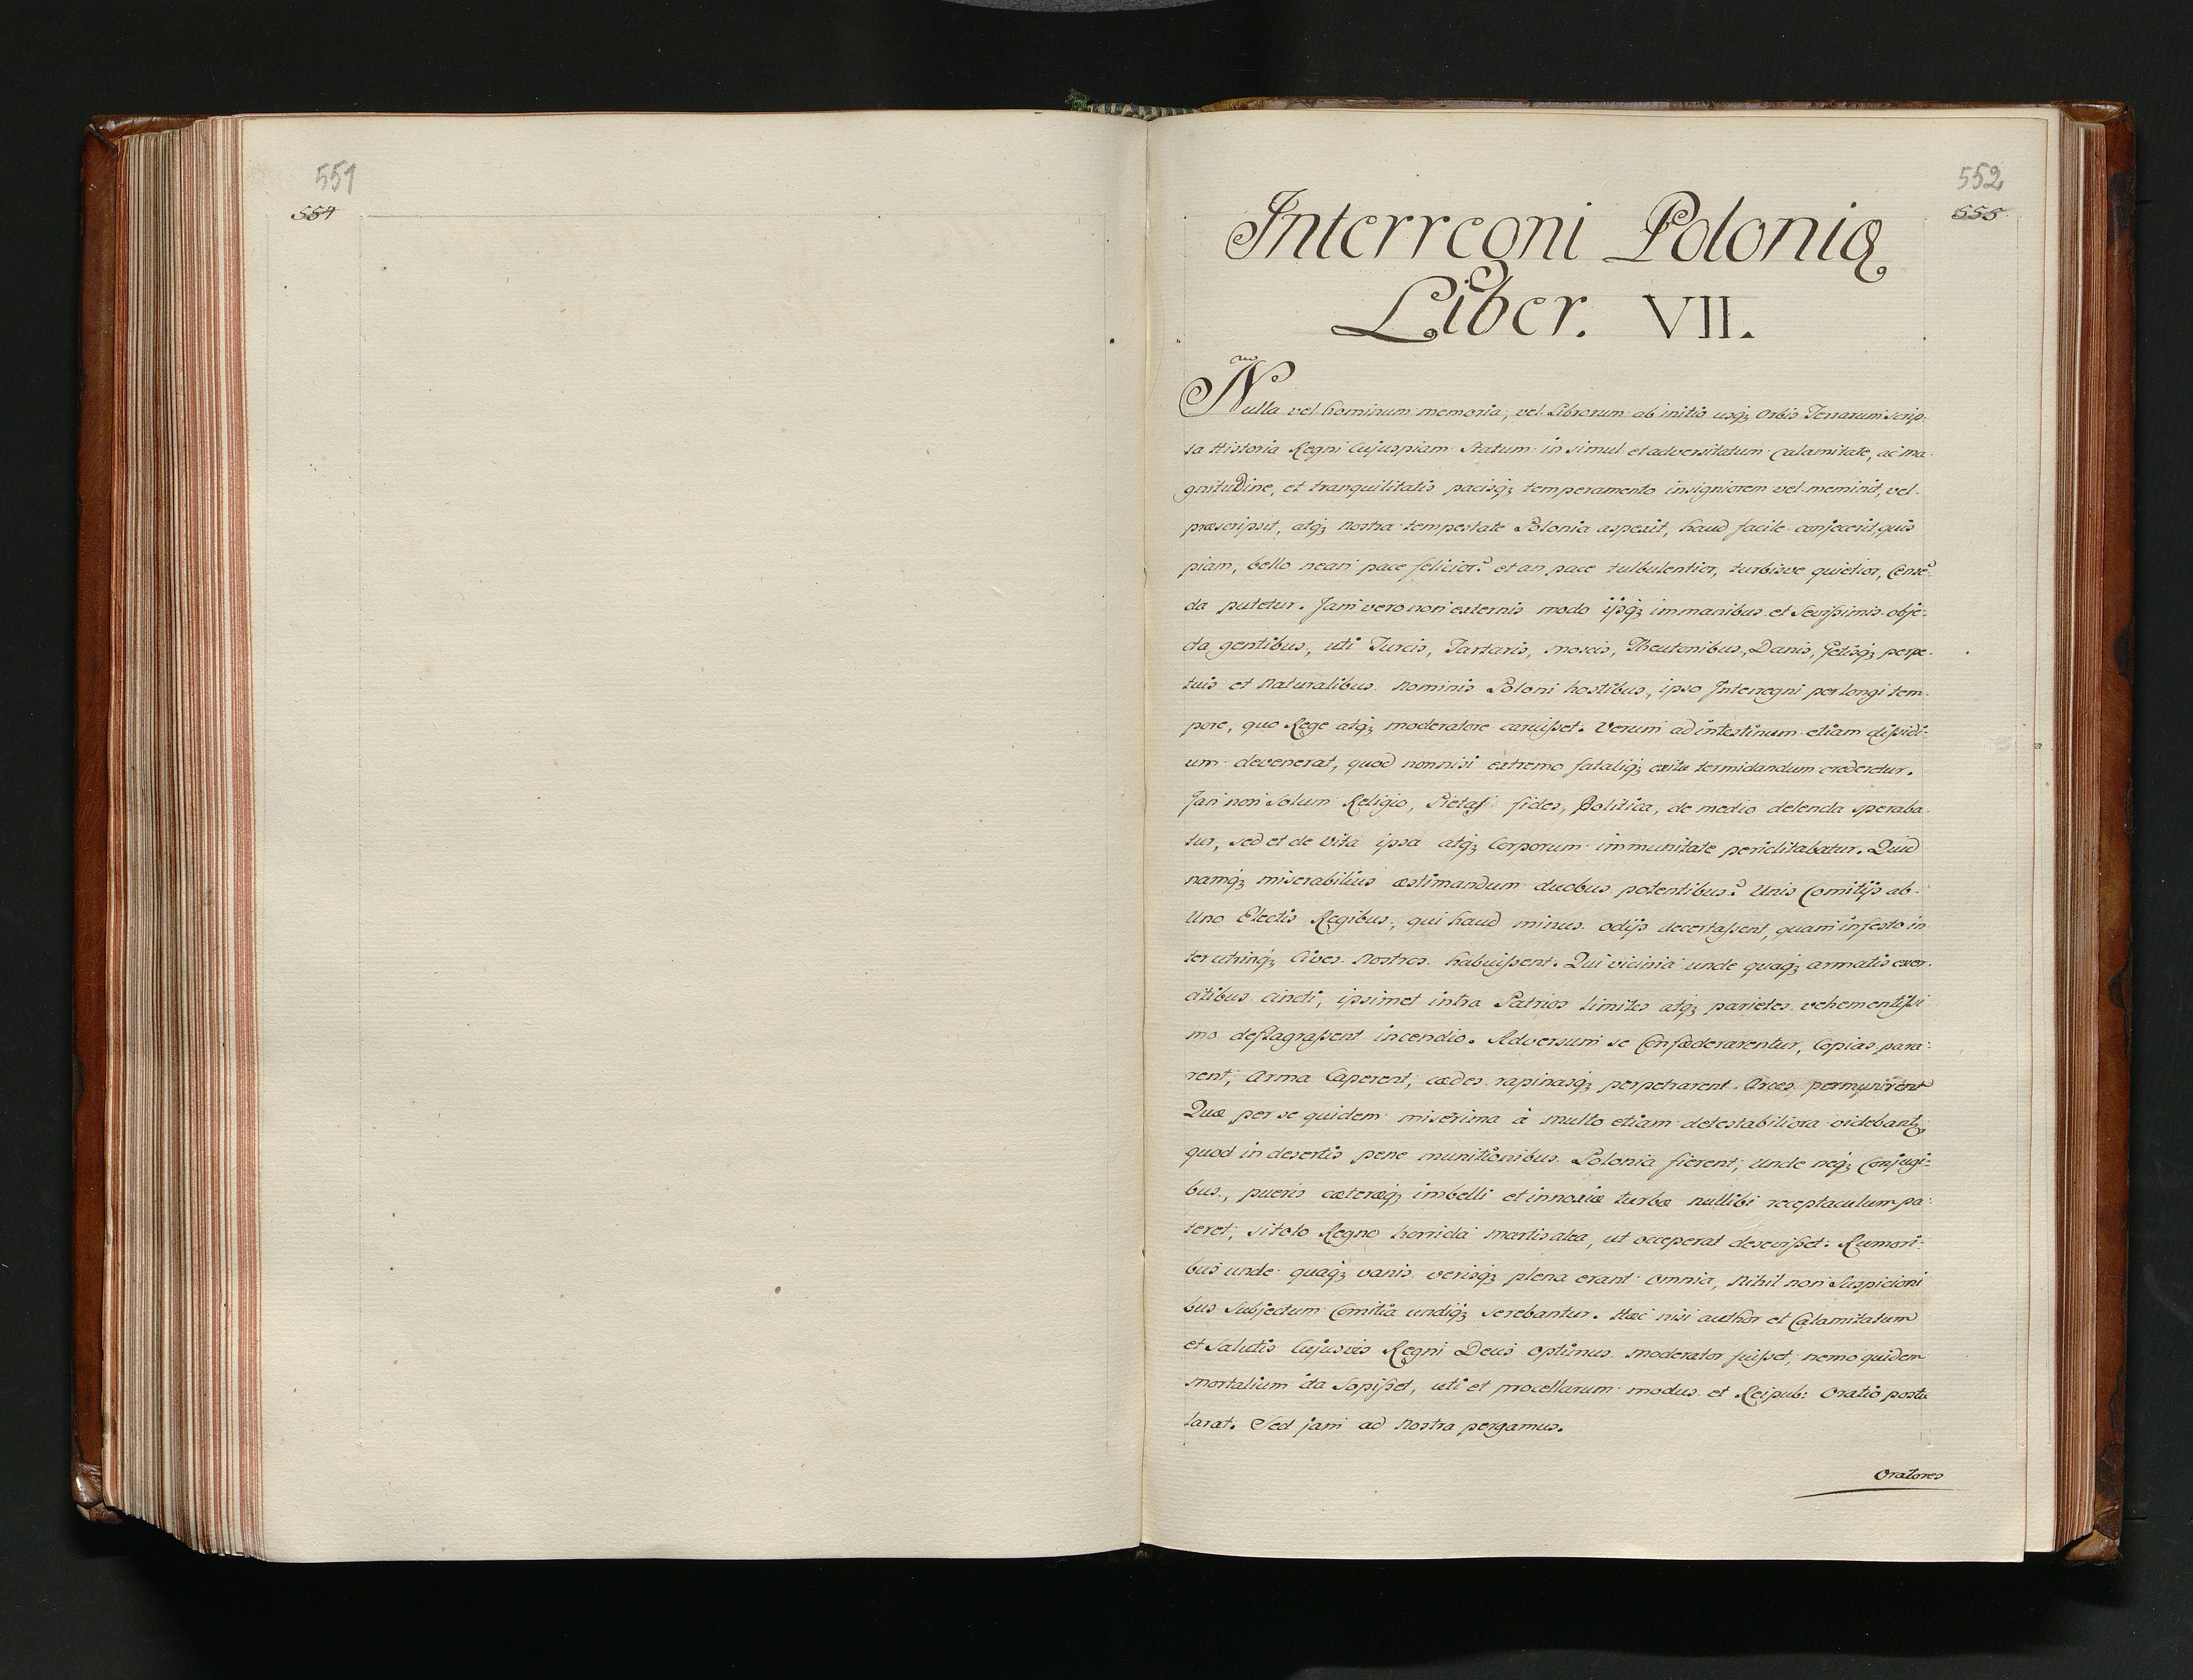 551
554
552
555
Interregni Polonię
Liber. VII.
Nulla vel hominum memoria, vel Librorum ab initio usq; Orbis Terrarum scrip-
ta Historia Regni Cujuspiam Statum in simul et adversitatum Calamitate, ac ma-
gnituDine, et tranquilitatis pacisq; temperamento insigniorem vel meminit, vel
præscripsit, atq; nostra tempestate Polonia aspexit, haud facile conjecerit quis
piam, bello ne an pace felicior? et an pace tulbulentior, turbisve quietior, Censē-
da putetur. Jam vero non externis modo ijsq; immanibus et Sevißimis obje-
cta gentibus, uti Turcis, Tartaris, Moscis, Theutonibus, Danis, Getisq; perpe-
tuis et Naturalibus Nominis Poloni hostibus, ipso Interregni perlongi tem-
pore, quo Rege atq; moderatore caruißet. Verum ad intestinum etiam dißidi-
um devenerat, quod nonnisi extremo fataliq; exitu termidandum crederetur.
Jam non Solum Religio, Pietas fides, Politica, de medio delenda speraba-
tur, sed et de Vita ipsa atq; Corporum immunitate periclitabatur. Quid
namq; miserabilius æstimandum duobus potentibus? Unis Comitijs ab
Uno Electis Regibus, qui haud minus odijs decertaßent, quam infesto in
ter utrinq; Cives Nostros habuißent. Qui vicinia unde quaq; armatis exer-
citibus cincti, ipsimet intra Patrios limites atq; parietes vehementißi
mo deflagraßent incendio. Adversum se Confæderarentur, Copias para-
rent, Arma Caperent, cædes rapinasq; perpetrarent Arces permunirent
Quæ per se quidem miserima à multo etiam detestabiliora videbantᷣ
quod in desertis pene munitionibus Polonia fierent, unde neq; Conjugi-
bus, pueris cæteræq; imbelli et innoxiæ turbæ nullibi receptaculum pa-
teret, si toto Regno horrida martis alea, ut occeperat desevißet. Rumori-
bus unde quaq; vanis verisq; plena erant omnia, Nihil non Suspicioni
bus Subjectum Comitia undiq; serebantur. Hæc nisi author et Calamitatum
et Salutis Cujusvis Regni Deus Optimus moderator fuißet, nemo quidem
mortalium ita Sopißet, uti et procellarum modus et Reipub: Oratio postu
larat. Sed jam ad Nostra pergamus.
Oratores